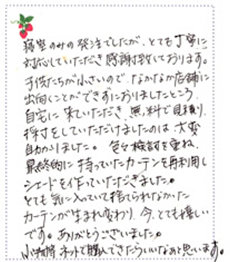 寝室のみの発注でしたが、とても丁寧に
対応していただき感謝致しております。
子供たちが小さいので、なかなか店舗に
出向くことができずにおりましたところ
自宅に来ていただき、無料で見積り、
採寸をしていただけましたのは大変
助かりました。色々検討を重ね、
最終的に持っていたカーテンを再利用し
シェードを作っていただきました。
とても気に入っていて捨てられなかった
カーテンが生まれ変わり、今、とても嬉しい
です。ありがとうございました。
小物等ネットで購入できたらいいなあと思います。